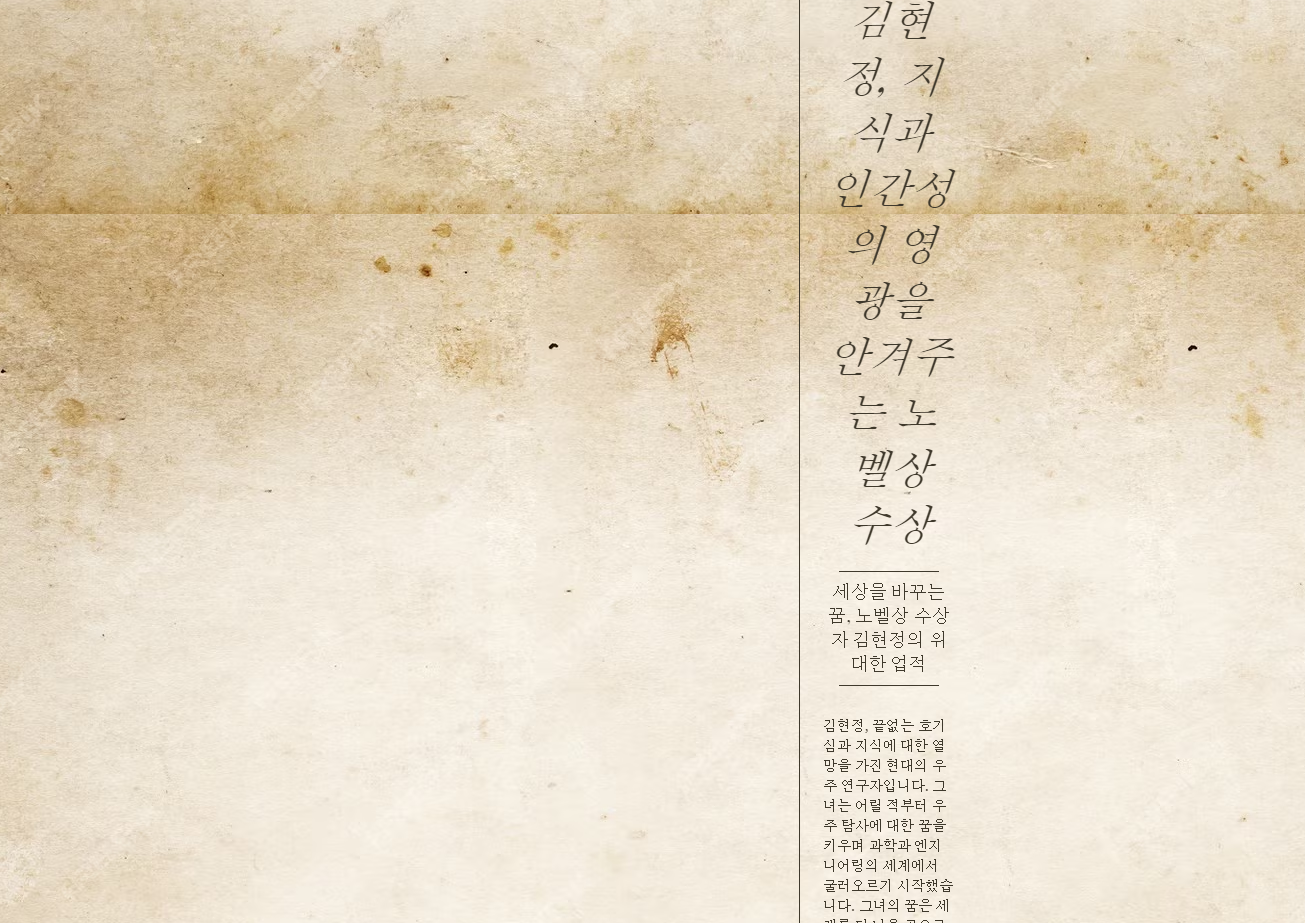 김현
정, 지
식과
인간성
의 영
광을
안겨주
는 노
벨상
수상
세상을 바꾸는
꿈, 노벨상 수상
자 김현정의 위
대한 업적
김현정, 끝없는 호기
심과 지식에 대한 열
망을 가진 현대의 우
주 연구자입니다. 그
녀는 어릴 적부터 우
주 탐사에 대한 꿈을
키우며 과학과 엔지
니어링의 세계에서
굴러오르기 시작했습
니다. 그녀의 꿈은 세